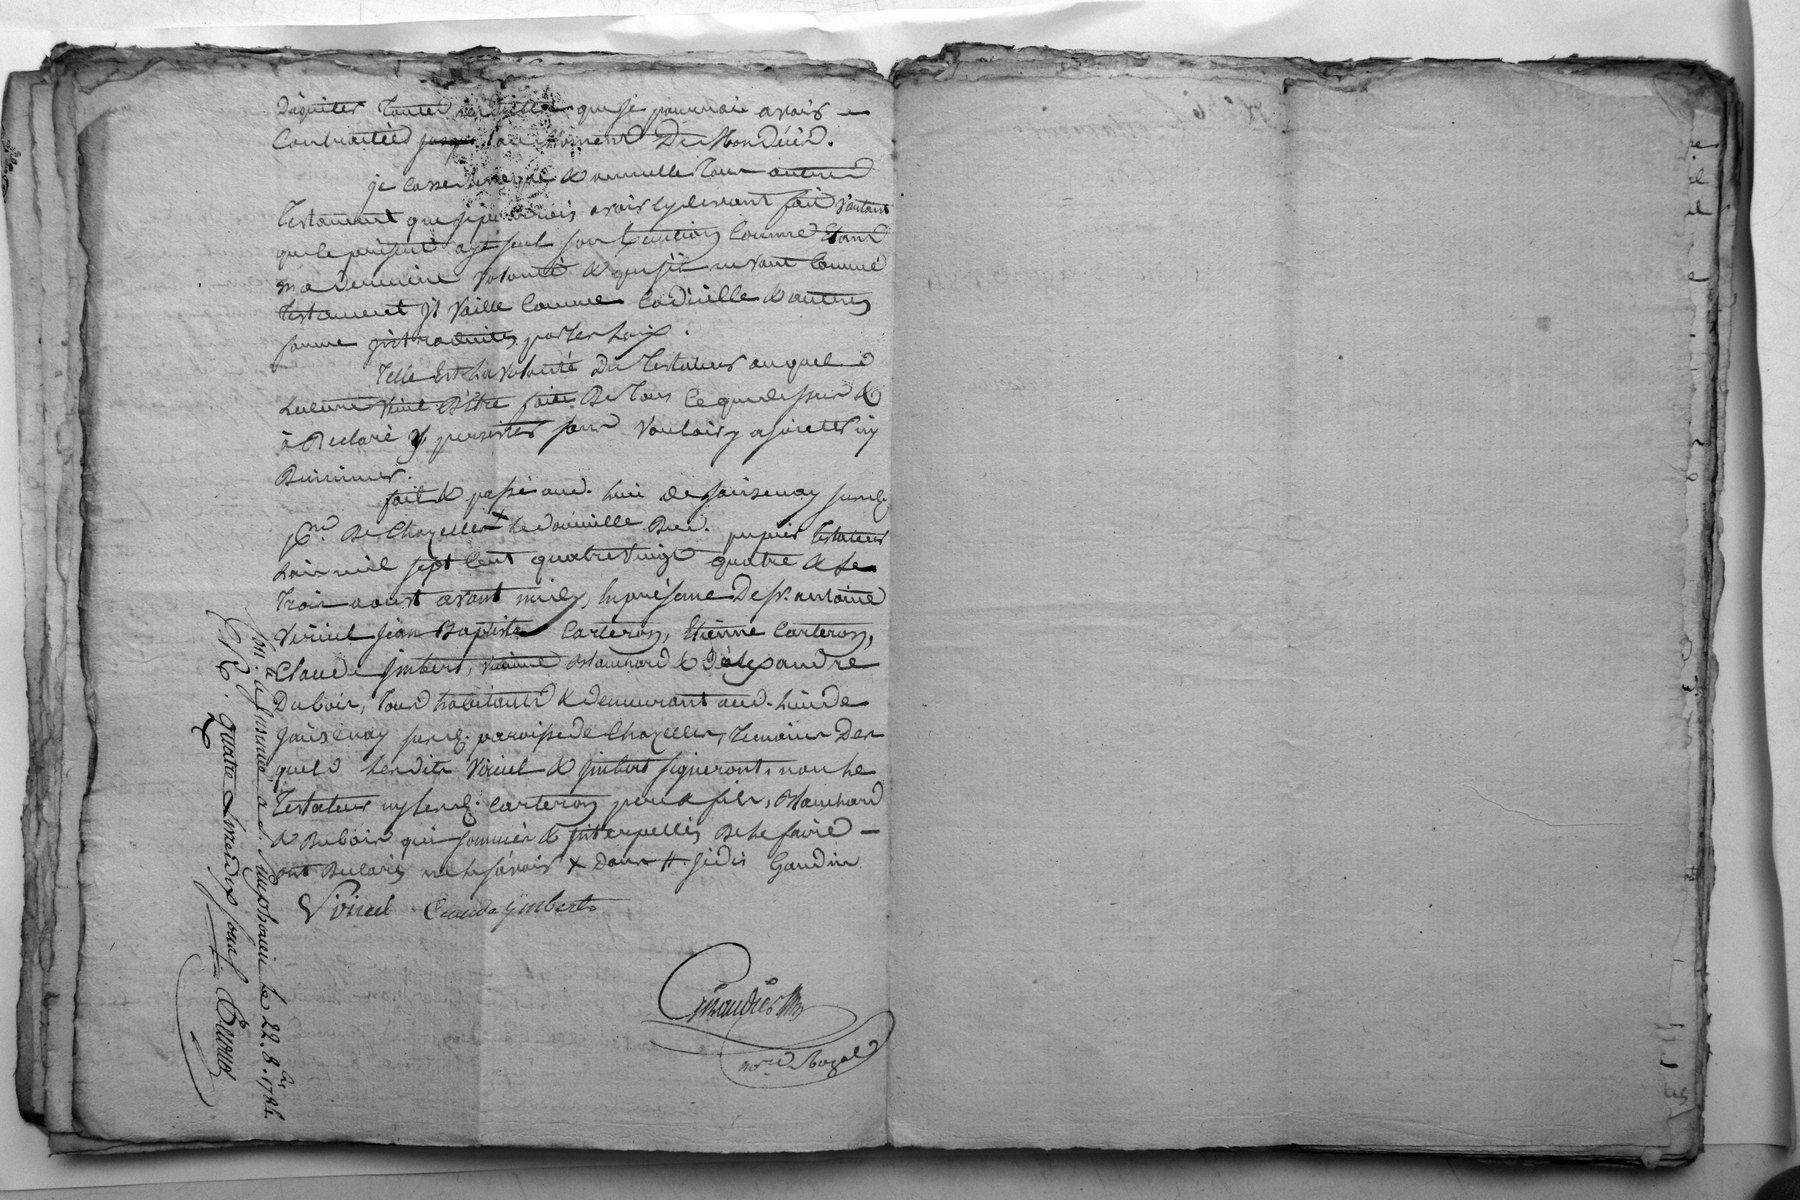 D'aquiter toutes que je pourrois avoir
Contractées au Moment De Mon décéd.
je casse revoque & annulle tous autres
Testament que je pourrois avoir cydevant fait voulant
que le présent ayt seul son Exécution Comme Etant
ma derniere volonté & que s'il ne vaut Comme
Testament jl vaille Comme Codicille & autres
forme jntroduites par les Loix.
Telle Est La volonté Du Testateur auquel
Lecture Vient D'être faite De Tous Ce que dessus &
à Declaré y persister sans Vouloir y ajouter ny
Diminuer.
fait & passé aud. Lieu de jansenay susd.
psse. De Chazelles Le Domicille Dud. Testateur
L'an mil sept Cent quatre vingt quatre & Le
Trois aoust avant midy, En présence De sr. antoine
Viricel jean Baptiste Carteron, Etienne Carteron,
Claude jmbert, Blanchard & D'alexandre
Dubois, Tous habitants & demeurant aud. Lieu de
jansenay susd. paroisse de Chazelles, Temoins Des
quels Lesdits Viricel & jmbert signeront, non Le
Testateur ny lesd. Carteron pere & fils, Blanchard
& Dubois qui sommés & jnterpellés De Le faire
ont Declaré ne le sçavoir
Viricel Claude jmbert
not.re Royal
à st. Simphorien le 22. 8.bre 1784.
R. quatre Livres dix sous